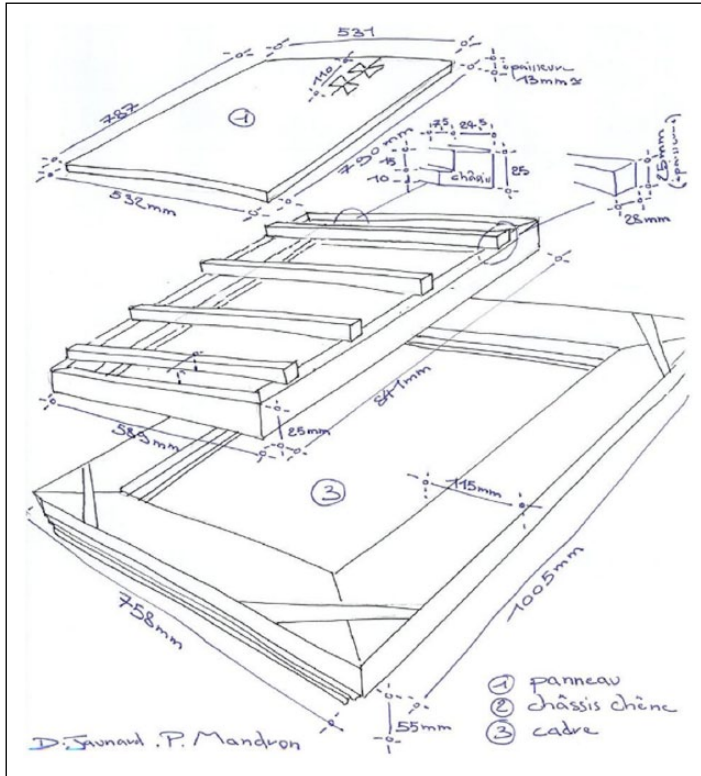 531
110
épaisseur
13mm ≈
787
①
532mm
790mm
7,5 24,5
15
10
châssis
25
25mm
28mm
589mm
25mm
841mm
③
115mm
758mm
1005mm
55mm
① panneau
② châssis chêne
③ cadre
D. Jaunard . P. Mandron